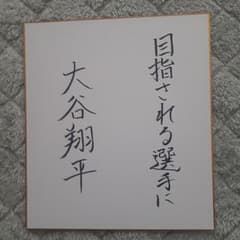 目指される選手に
大谷翔平